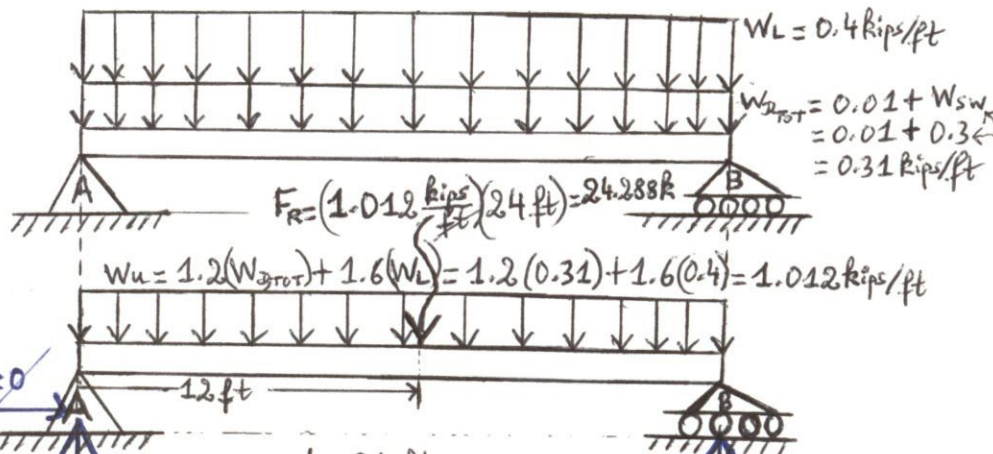 W_L = 0.4 kips/ft
W_D_TOT = 0.01 + W_SW
= 0.01 + 0.3 ←
= 0.31 kips/ft
A
B
F_R = (1.012 kips/ft)(24 ft) = 24.288k
W_u = 1.2(W_D_TOT) + 1.6(W_L) = 1.2(0.31) + 1.6(0.4) = 1.012 kips/ft
12 ft
A
B